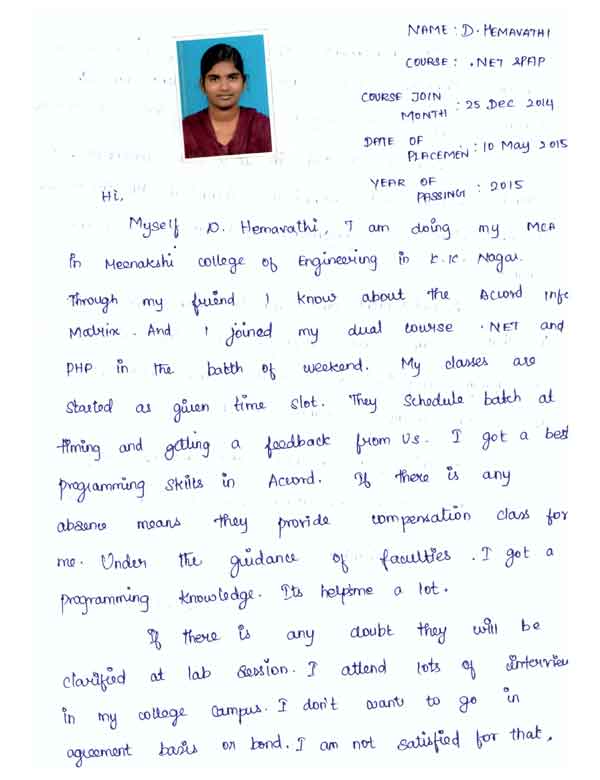 NAME : D. HEMAVATHI
COURSE : .NET &PHP
COURSE JOIN
MONTH : 25 Dec 2014
DATE OF
PLACEMEN : 10 May 2015
YEAR OF
PASSING : 2015
Hi,
Myself D. Hemavathi, I am doing my MCA
in Meenakshi college of Engineering in K.K. Nagar.
Through my friend I know about the Accord Info
Matrix. And I joined my dual course .NET and
PHP in the batth of weekend. My classes are
started as given time slot. They Schedule batch at
timing and getting a feedback from Us. I got a best
programming skills in Accord. If there is any
absence means they provide compensation class for
me. Under the guidance of faculties. I got a
programming knowledge. Its helpsme a lot.
If there is any doubt they will be
clarified at lab session. I attend lots of interview
in my college campus. I don't want to go in
agreement basis or bond. I am not satisfied for that,